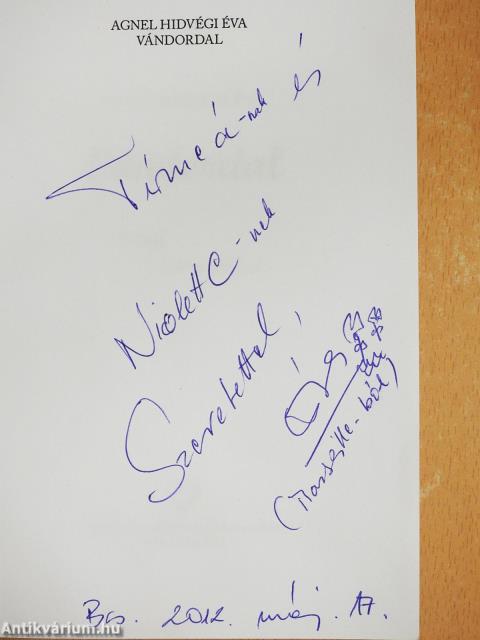 AGNEL HIDVÉGI ÉVA
VÁNDORDAL
Tímeá-nak és
Nicolett C-nek
Szeretettel,
Éva
(Marseille-ből)
Bp. 2012. máj. 17.
Antikvárium.hu